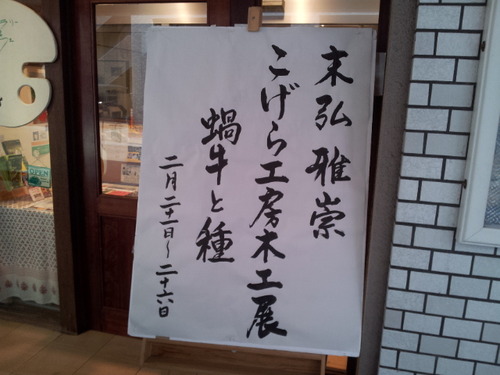 末弘雅崇
こげら工房木工展
蝸牛と種
二月二十一日～二十六日
OPEN